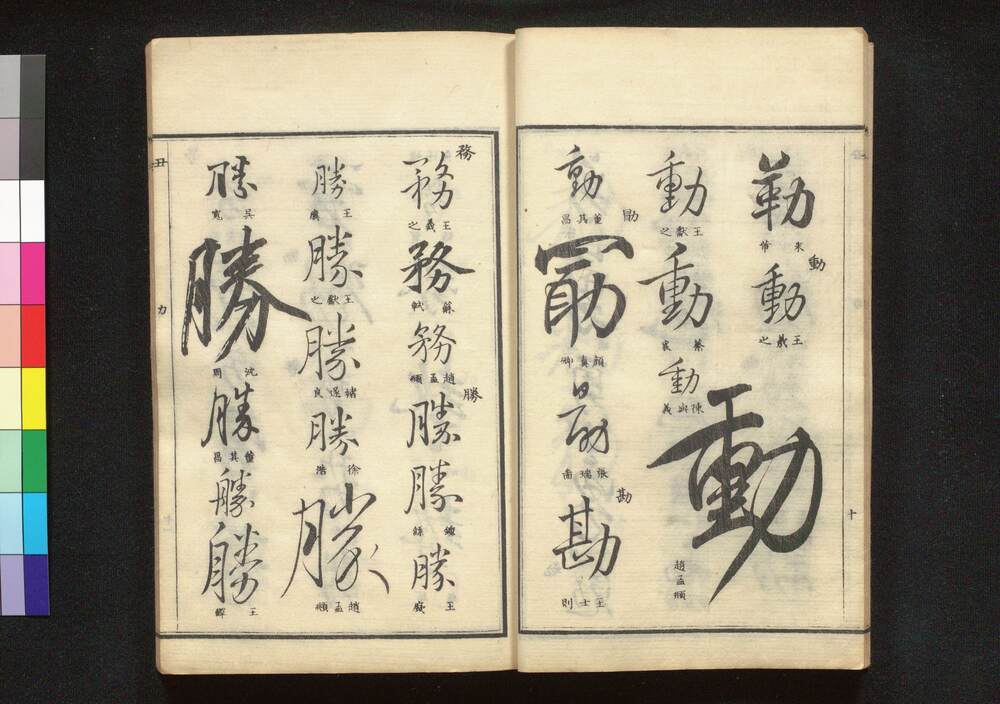 勒
來 市
動
動
王羲之
動
趙孟頫
動
王獻之
動
蔡襄
動
陳與義
動
董其昌
勖
勖
顏真卿
勖
張瑞圖
勘
勘
王士則
十
務
務
王羲之
務
蘇軾
務
趙孟頫
勝
勝
勝
鍾繇
勝
王廙
勝
王廙
勝
王獻之
勝
褚遂良
勝
徐浩
勝
趙孟頫
勝
吳寬
勝
沈周
勝
董其昌
勝
勝
王鐸
丑
力